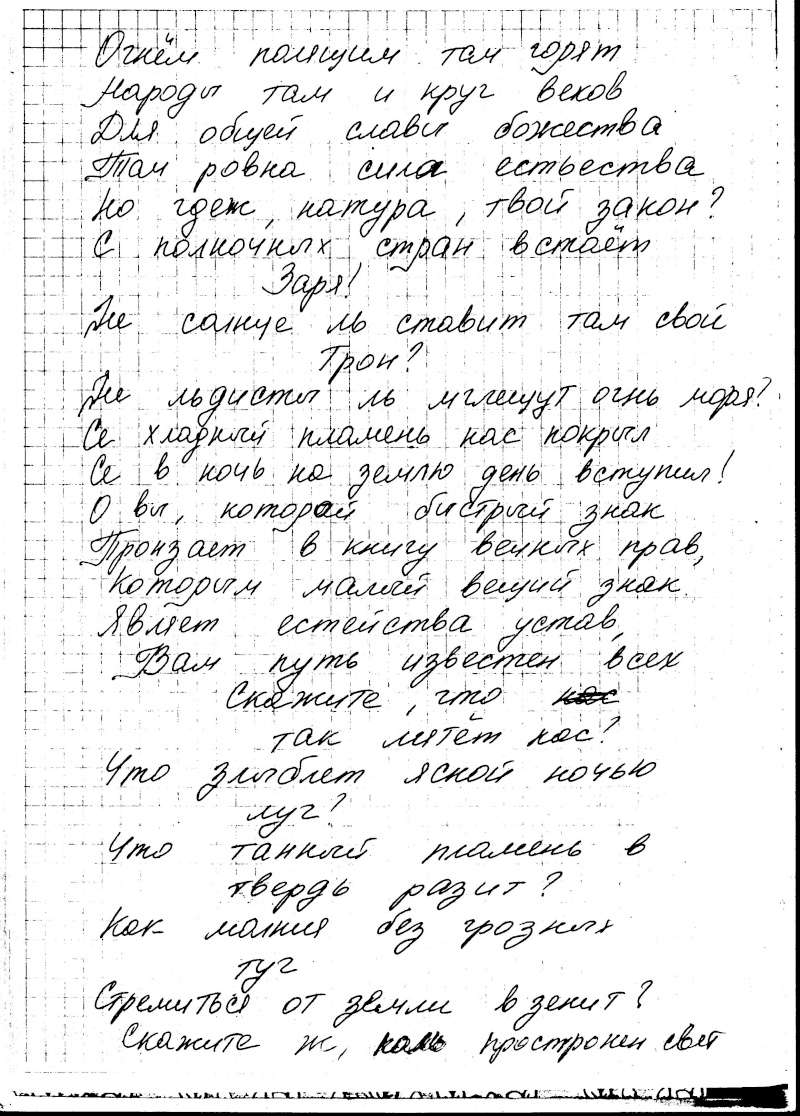 Огнём палящим там горят
Народы там и круг веков
Для общей славы божества
Там ровна сила естьества
Но гдеж, натура, твой закон?
С полночных стран встаёт
Заря!
Не солнце ль ставит там свой
Трон?
Не льдисты ль мглещут огнь моря?
Се хладный пламень нас покрыл
Се в ночь на землю день вступил!
О вы, которой быстрый знак
Пронзает в книгу вечных прав,
Которым малый вещий знак
Являет естейства устав,
Вам путь известен всех
Скажите, что нас
так мятёт нас?
Что злыблет ясной ночью
луг?
Что танный пламень в
твердь разит?
Как малния без грозных
туг
Стремиться от земли в зенит?
Скажите ж, коль пространен свет